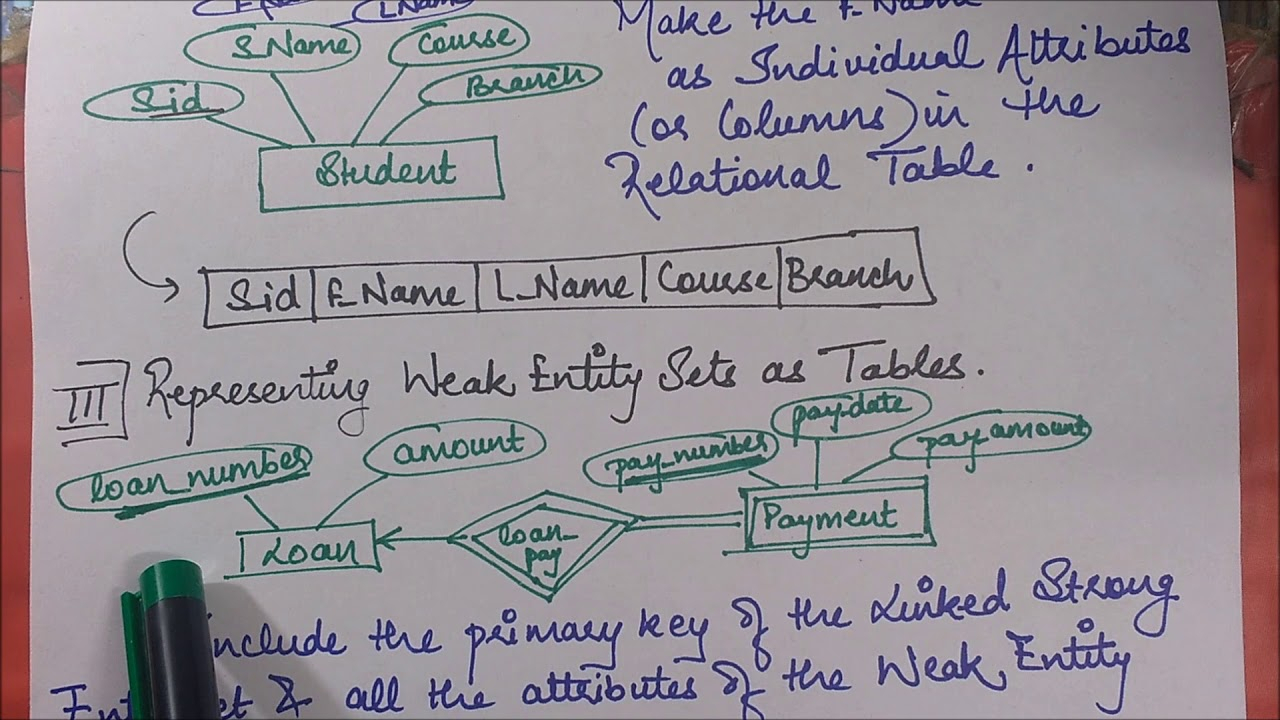 L_Name
Make the F_Name
S_Name
Course
as Individual Attributes
Sid
Branch
(or Columns) in the
Student
Relational Table.
Sid | F_Name | L_Name | Course | Branch
III Representing Weak Entity Sets as Tables.
loan_number
amount
pay_number
pay_date
pay_amount
Loan
loan_
pay
Payment
include the primary key of the Linked Strong
& all the attributes of the Weak Entity